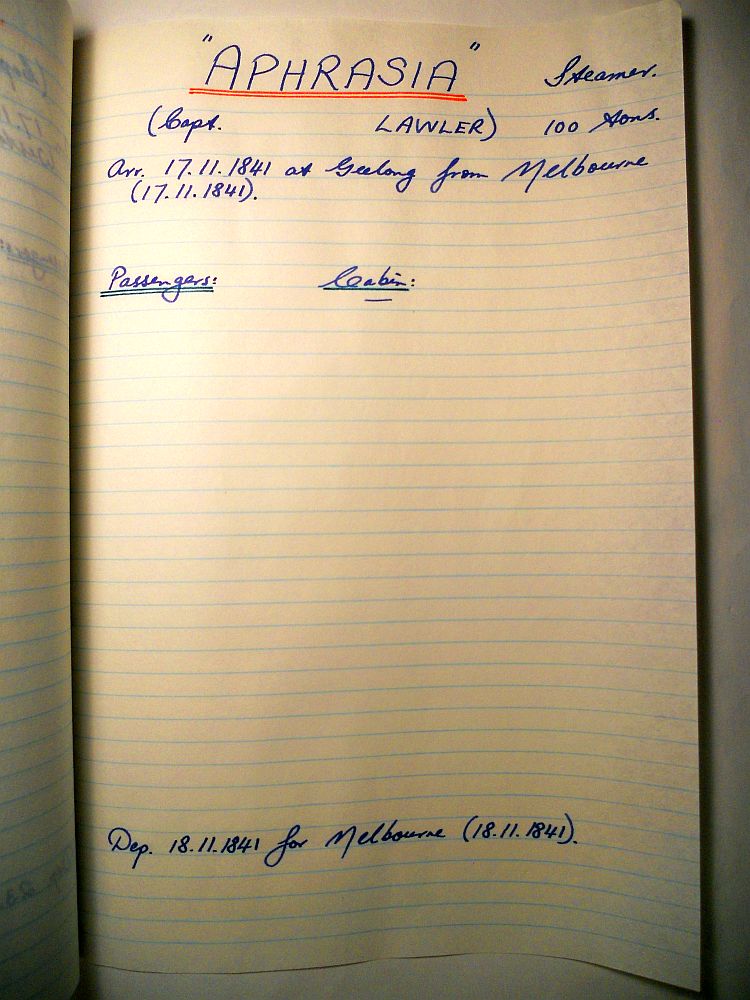 "APHRASIA" Steamer.
(Capt. LAWLER) 100 tons.
Arr. 17.11.1841 at Geelong from Melbourne
(17.11.1841).
Passengers: Cabin:
—
Dep. 18.11.1841 for Melbourne (18.11.1841).